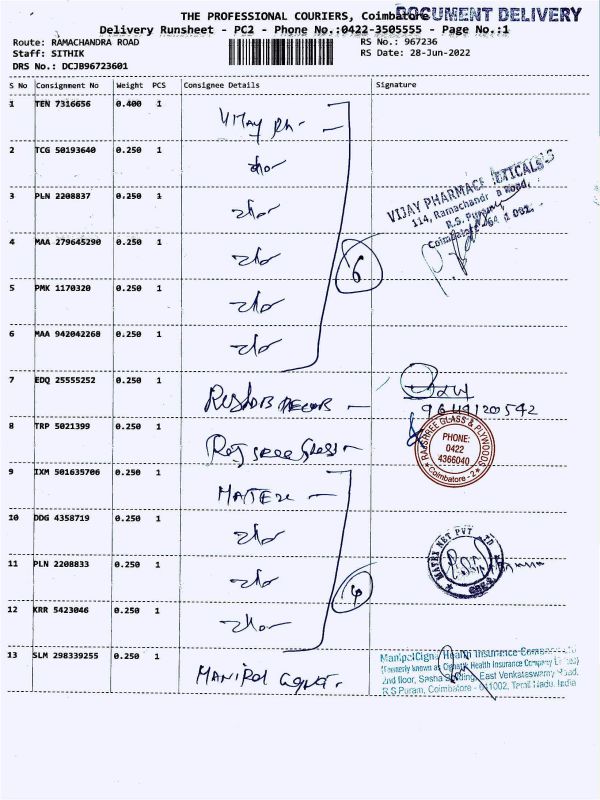 THE PROFESSIONAL COURIERS, Coimbatore
DOCUMENT DELIVERY
Delivery Runsheet - PC2 - Phone No.:0422-3505555 - Page No.:1
Route: RAMACHANDRA ROAD
RS No.: 967236
Staff: SITHIK
RS Date: 28-Jun-2022
DRS No.: DCJB96723601
S No Consignment No Weight PCS Consignee Details Signature
1 TEN 7316656 0.400 1
2 TCG 50193640 0.250 1
3 PLN 2208837 0.250 1
VIJAY PHARMACEUTICALS
114, Ramachandra Road,
R.S. Puram,
Coimbatore - 641 002.
4 MAA 279645290 0.250 1
6
5 PMK 1170320 0.250 1
6 MAA 942042268 0.250 1
7 EDQ 25555252 0.250 1
8 TRP 5021399 0.250 1 Rajsree Glass
RAJSREE GLASS & PLYWOODS
PHONE:
0422
4366040
Coimbatore - 2
9 IXM 501635706 0.250 1
10 DDG 4358719 0.250 1
MATEX NET PVT LTD
CBE-2
11 PLN 2208833 0.250 1
12 KRR 5423046 0.250 1
13 SLM 298339255 0.250 1 MANIPAL
ManipalCigna Health Insurance Company Ltd
(Formerly known as CignaTTK Health Insurance Company Limited)
2nd floor, Sasha Building, East Venkataswamy Road,
R.S Puram, Coimbatore - 641002, Tamil Nadu, India